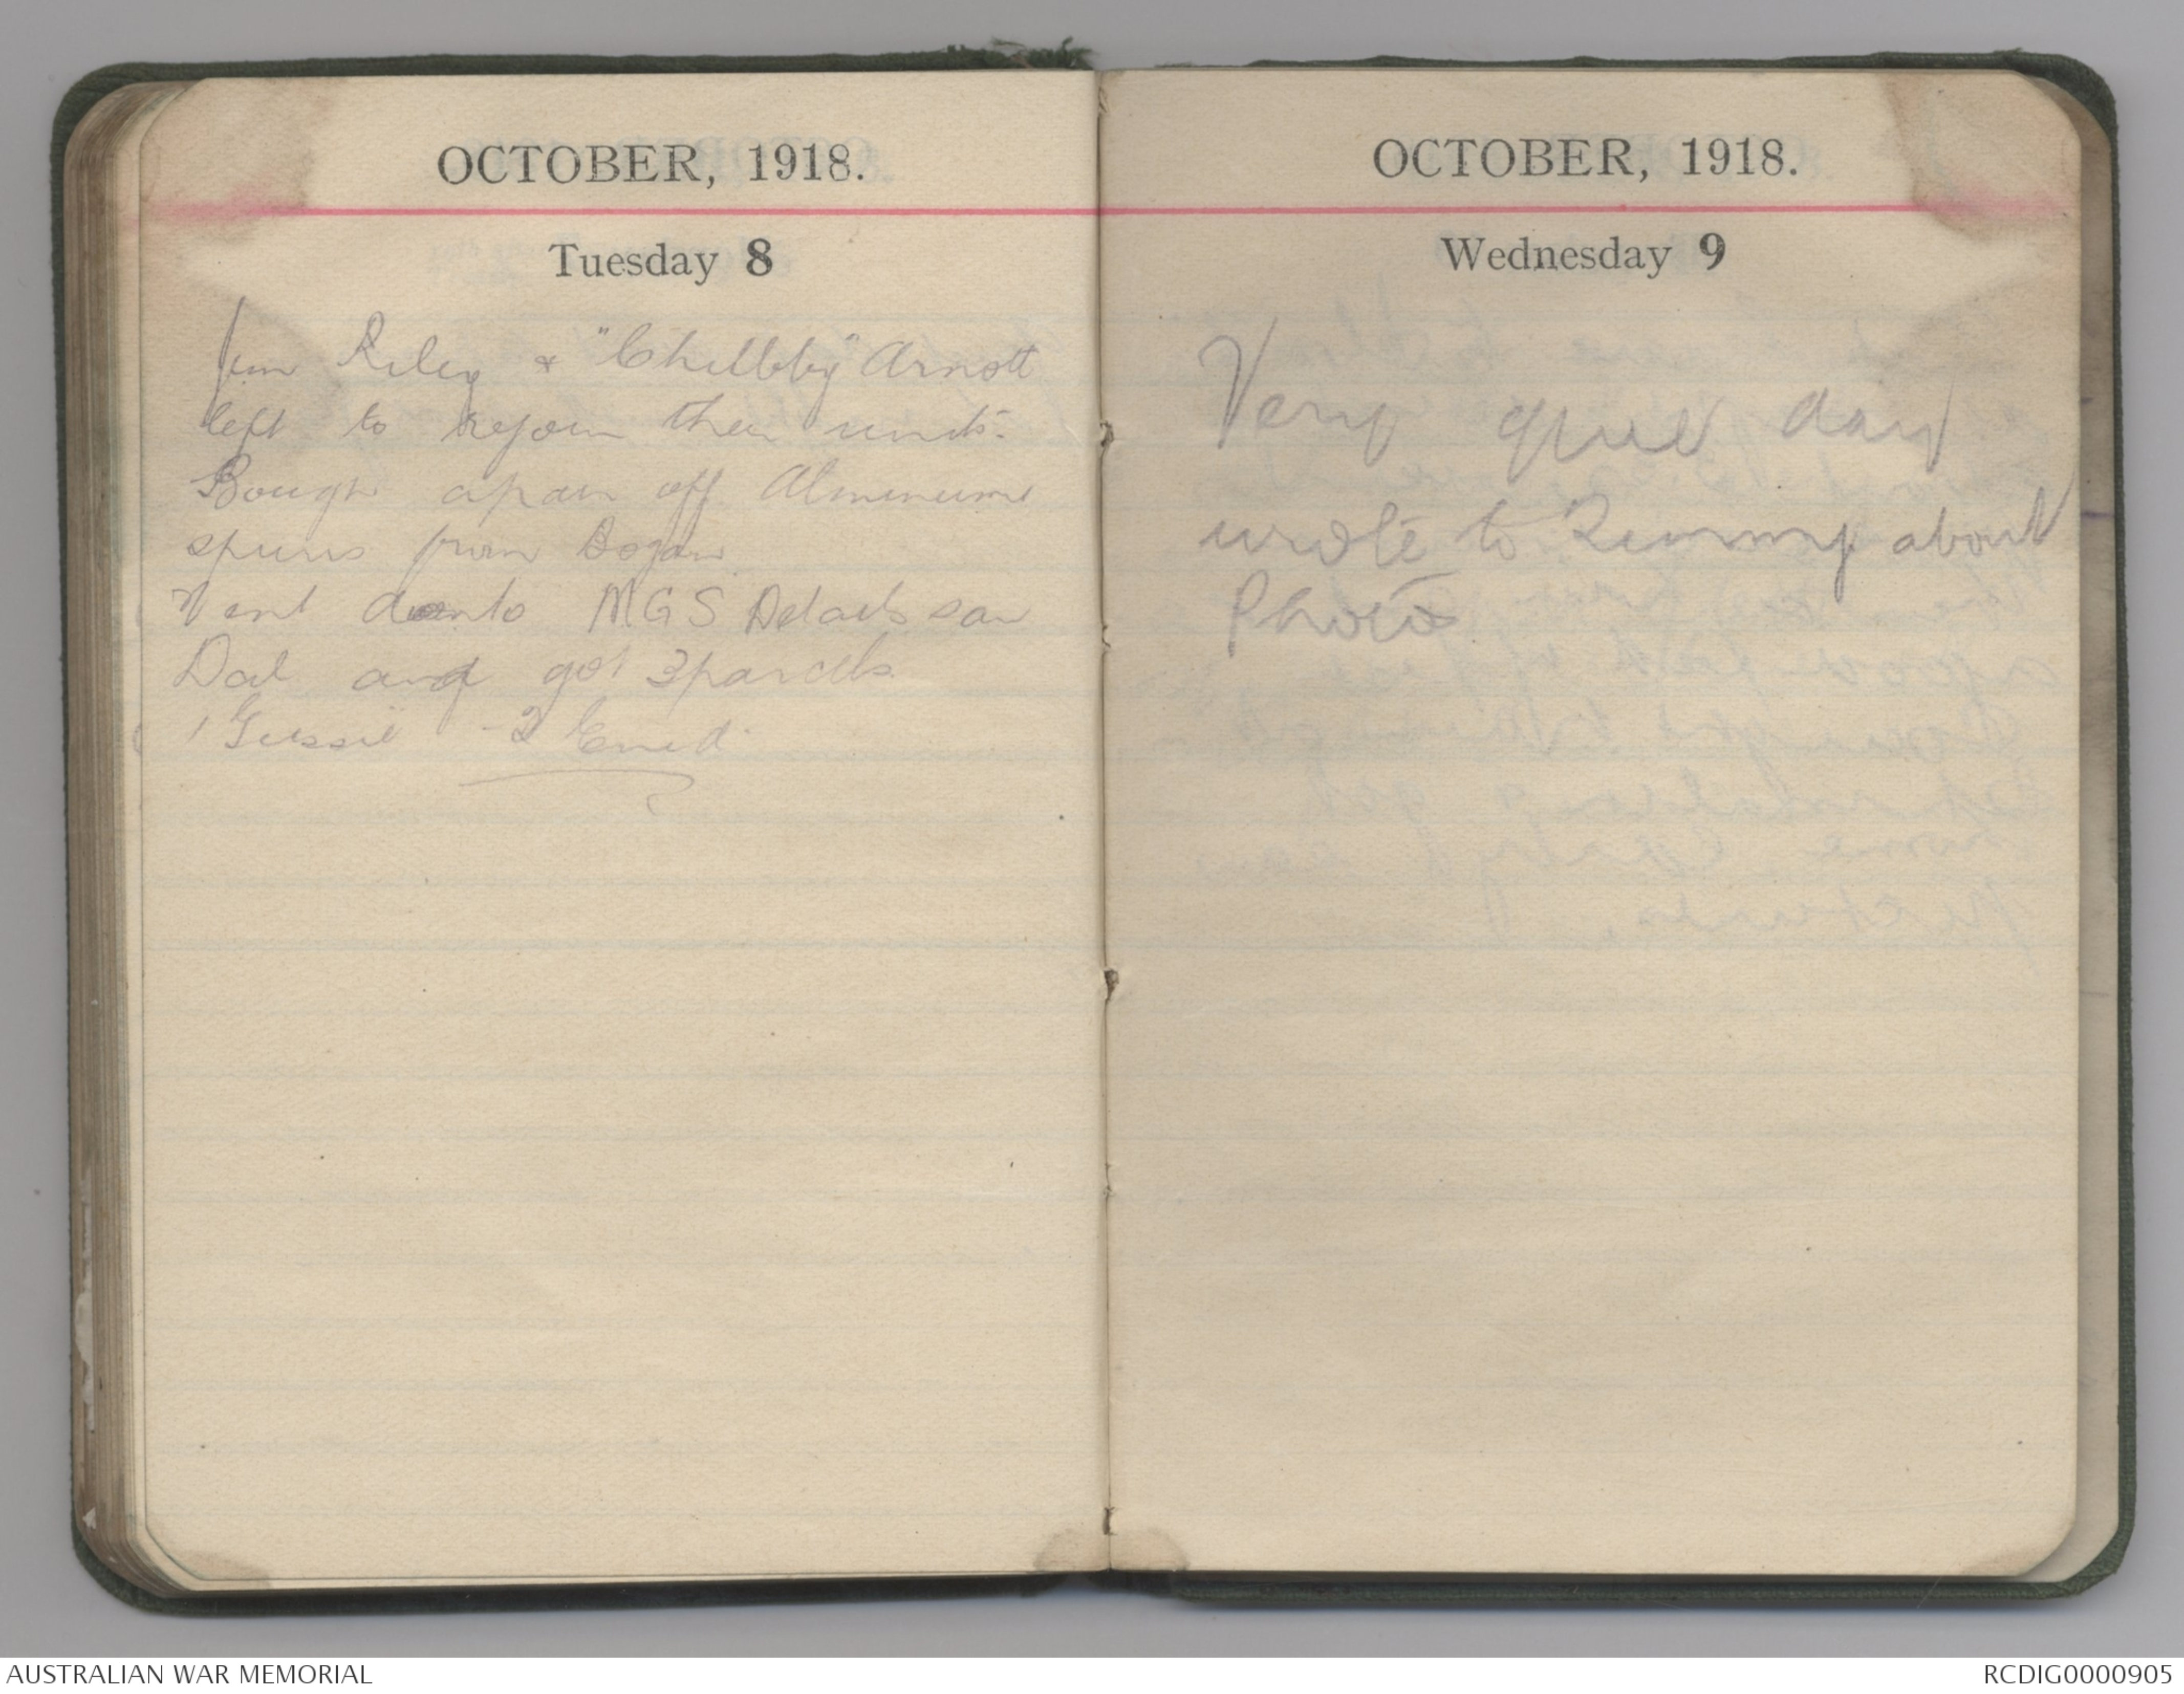 OCTOBER, 1918.
Tuesday 8
Jim Riley & "Chubby" Arnott
left to rejoin their units.
Bought a pair off Alminume
spurs from Bogan
Went to MGS Details saw
Dal and got 3 parcels
1 Gussie - 2 Enid.
OCTOBER, 1918.
Wednesday 9
Very quiet day
wrote to about
Photo
AUSTRALIAN WAR MEMORIAL
RCDIG0000905